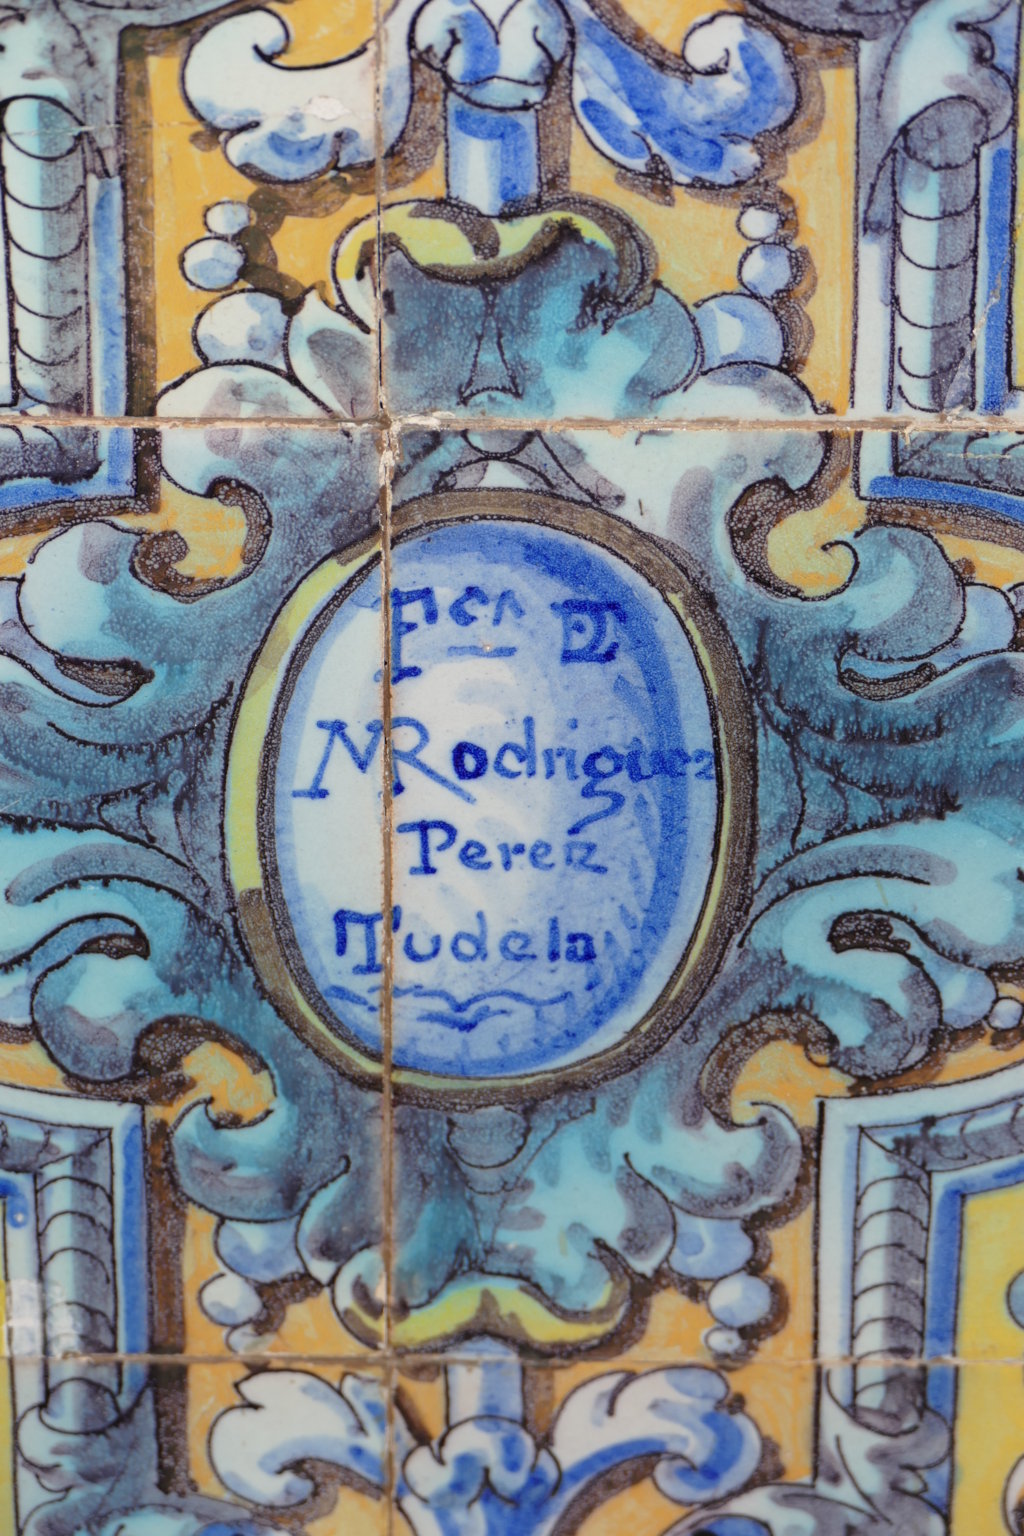 Fca DE
N Rodriguez
Perez
Tudela